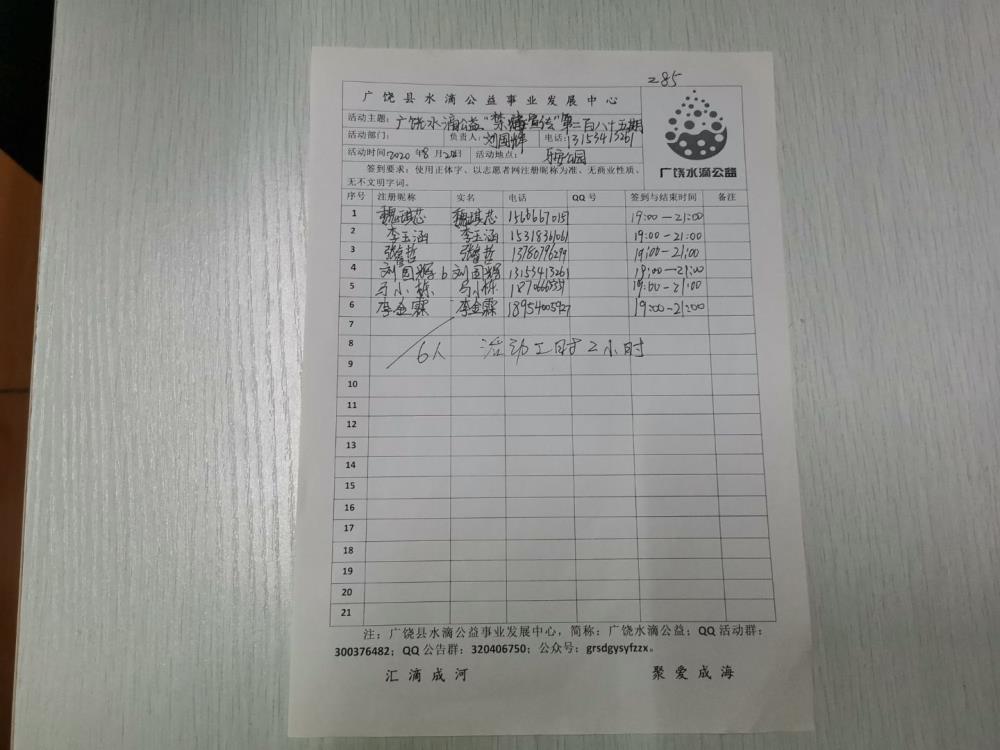 285
广饶县水滴公益事业发展中心
活动主题：广饶水滴公益"禁毒宣传"第二百八十五期
活动部门： 负责人：刘国辉 电话：13153413261
活动时间：2020年8月2日 活动地点： 乐安公园
签到要求：使用正体字、以志愿者网注册昵称为准、无商业性质、
无不文明字词。
广饶水滴公益
序号 注册昵称 实名 电话 QQ号 签到与结束时间 备注
1 魏琪芯 魏琪芯 15666670157 19:00-21:00
2 李玉涵 李玉涵 15318361061 19:00-21:00
3 张睿哲 张睿哲 13780796299 19:00-21:00
4 刘国辉6 刘国辉 13153413261 19:00-21:00
5 马小栋 马小栋 19:00-21:00
6 李金霖 李金霖 18954005927 19:00-21:00
7
8 6人 活动工时2小时
9
10
11
12
13
14
15
16
17
18
19
20
21
注：广饶县水滴公益事业发展中心，简称：广饶水滴公益；QQ活动群：
300376482；QQ公告群：320406750；公众号：grsdgysyfzzx。
汇滴成河 聚爱成海